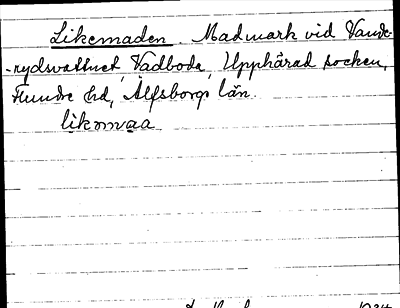 Likemaden. Madmark vid Vande-
-rydsvattnet Vadboda, Upphärad socken,
Flundre hd, Älfsborgs län.
likǝmaa